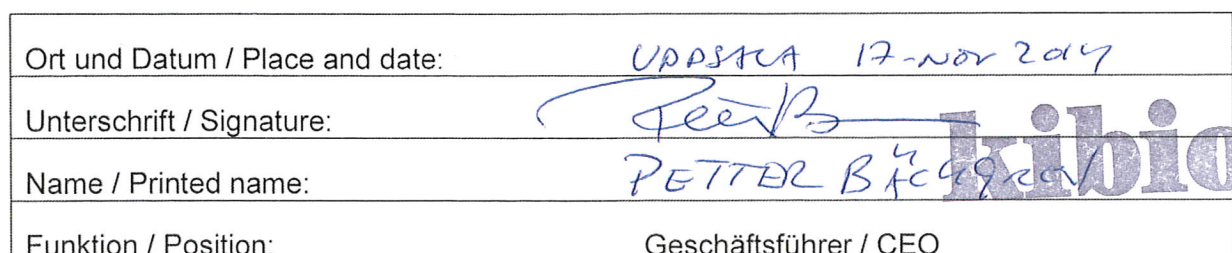 Ort und Datum / Place and date: UPPSALA 17-Nov 2014
Unterschrift / Signature:
Name / Printed name: PETTER BÄCKGREN
kibio
Funktion / Position: Geschäftsführer / CEO